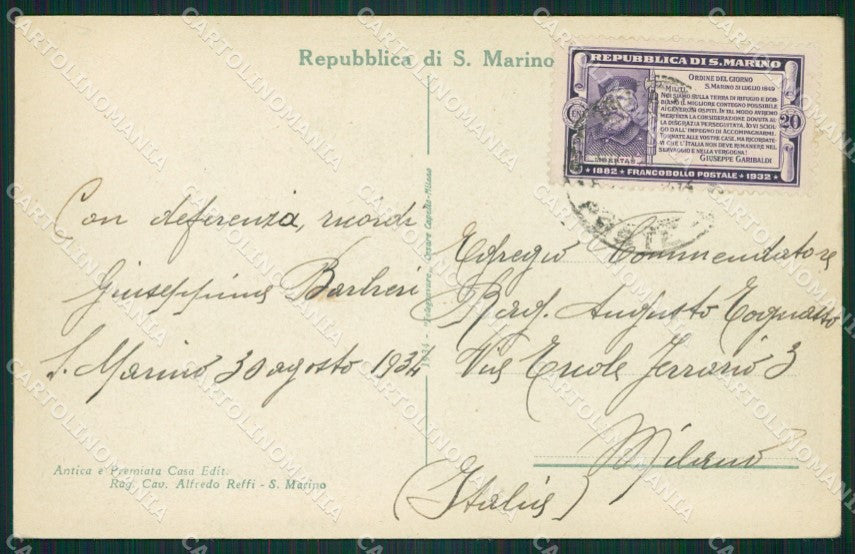 Repubblica di S. Marino
REPUBBLICA DI S. MARINO
ORDINE DEL GIORNO
S. MARINO 31 LUGLIO 1849
MILITI,
NOI SIAMO SULLA TERRA DI RIFUGIO E DOB-
BIAMO IL MIGLIORE CONTEGNO POSSIBILE
AI GENEROSI OSPITI. IN TAL MODO AVREMO
MERITATA LA CONSIDERAZIONE DOVUTA AL
LA DISGRAZIA PERSEGUITATA. IO VI SCIOL
GO DALL'IMPEGNO DI ACCOMPAGNARMI.
TORNATE ALLE VOSTRE CASE, MA RICORDATE
VI CHE L'ITALIA NON DEVE RIMANERE NEL
SERVAGGIO E NELLA VERGOGNA!
GIUSEPPE GARIBALDI
LIBERTAS
20
1882 ★ FRANCOBOLLO POSTALE ★ 1932
POSTE
Con deferenza, ricordi
Giuseppina Barbieri
S. Marino 30 agosto 1934
Egregio Commendatore
Rag. Augusto Cognasso
Via Ercole Ferrario 3
Milano
(Italia)
Cesare Capello - Milano
1934
Antica e Premiata Casa Edit.
Rag. Cav. Alfredo Reffi - S. Marino
CARTOLINOMANIA